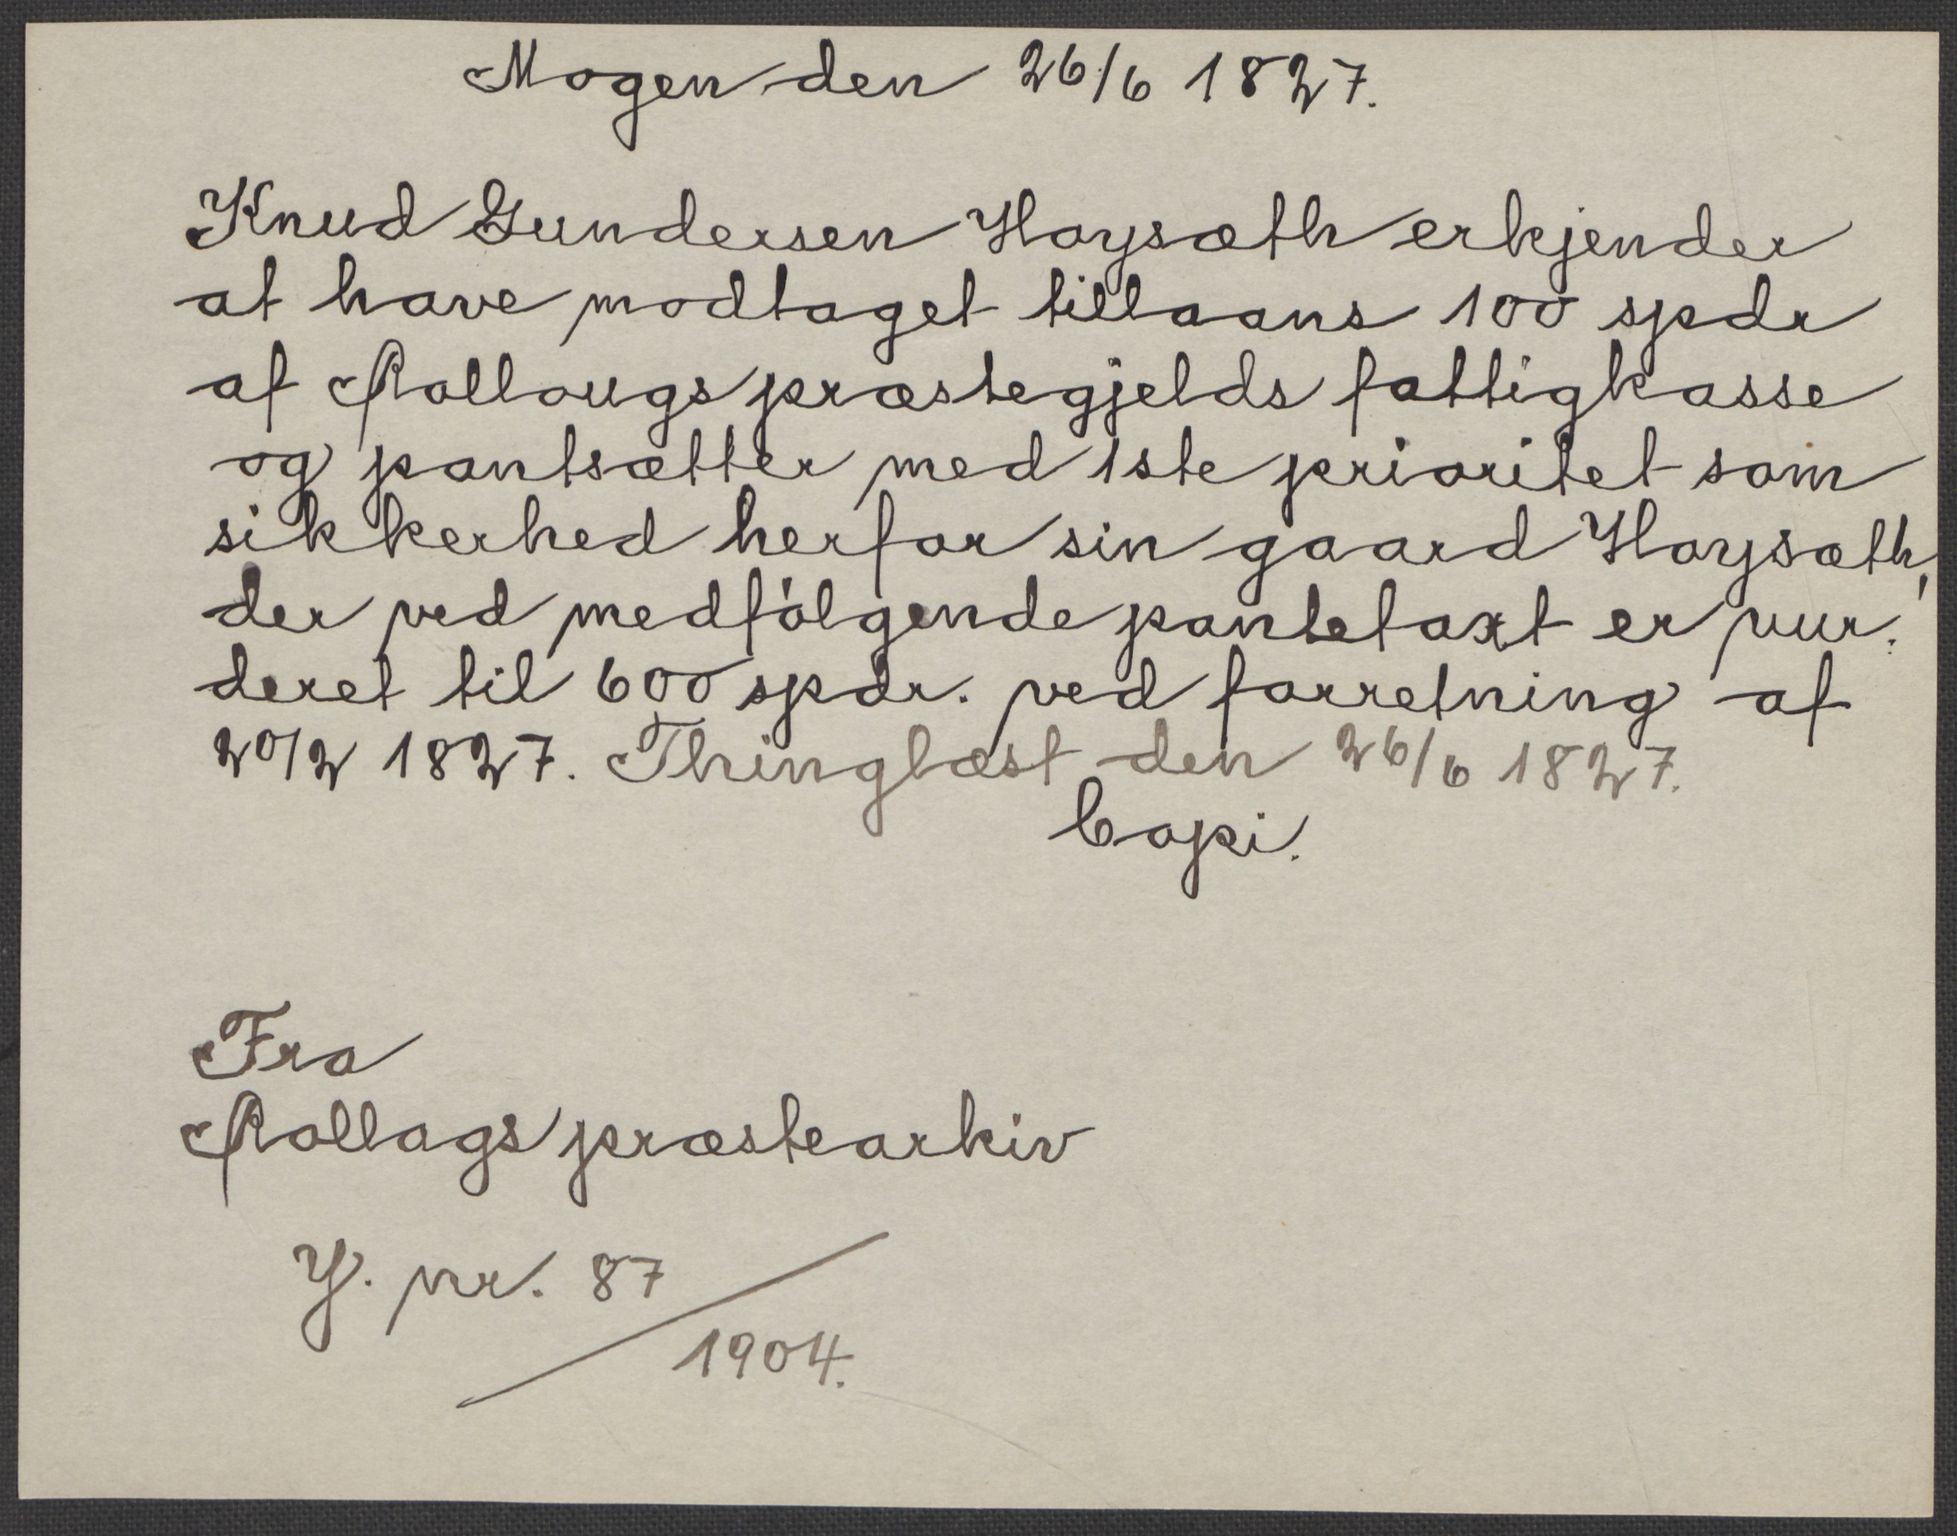 Mogen den 26/6 1827.
Knud Gundersen Hoysæth erkjender
at have modtaget tillaans 100 spdr
af Rollougs præstegjelds fattigkasse
og pantsætter med 1ste prioritet som
sikkerhed herfor sin gaard Hoysæth,
der ved medfölgende pantetaxt er vur-
deret til 600 spdr. ved forretning af
20/2 1827. Thinglæst den 26/6 1827.
Copi.
Fra
Rollags præstearkiv
J. nr. 87/1904.